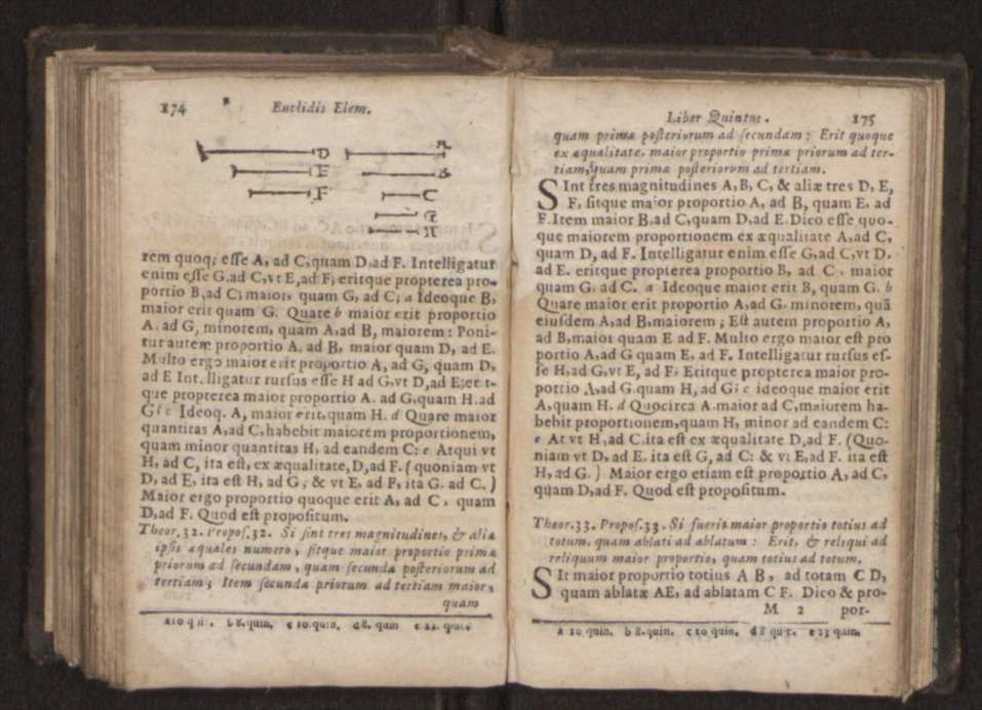 174 Euclidis Elem.
D A
E B
F C
G
H
rem quoq; esse A, ad C, quam D, ad F. Intelligatur
enim esse G. ad C, vt E, ad F, eritque propterea pro-
portio B, ad C, maior, quam G, ad C; a Ideoque B,
maior erit quam G. Quare b maior erit proportio
A. ad G, minorem, quam A, ad B, maiorem: Poni-
tur autem proportio A. ad B, maior quam D, ad E.
Multo ergo maior erit proportio A, ad G, quam D,
ad E Intelligatur rursus esse H ad G, vt D, ad E; erit-
que propterea maior proportio A. ad G, quam H. ad
G; c Ideoq. A, maior erit, quam H. d Quare maior
quantitas A, ad C, habebit maiorem proportionem,
quam minor quantitas H, ad eandem C: e Atqui vt
H, ad C, ita est, ex æqualitate, D, ad F. ( quoniam vt
D, ad E, ita est H, ad G; & vt E, ad F, ita G. ad C. )
Maior ergo proportio quoque erit A, ad C, quam
D, ad F. Quod est propositum.
Theor. 32. Propos. 32. Si sint tres magnitudines, & aliæ
ipsis æquales numero, sitque maior proportio primæ
priorum ad secundam, quam secundæ posteriorum ad
tertiam; Item secundæ priorum ad tertiam maior,
quam
a 10 quin. b 8. quin. c 10. quin. d 8. quin e quin
Liber Quintus. 175
quam primæ posteriorum ad secundam; Erit quoque
ex æqualitate, maior proportio primæ priorum ad ter-
tiam, quam primæ posteriorum ad tertiam.
SInt tres magnitudines A, B, C, & aliæ tres D, E,
F, sitque maior proportio A, ad B, quam E, ad
F. Item maior B. ad C, quam D. ad E. Dico esse quo-
que maiorem proportionem ex æqualitate A, ad C,
quam D, ad F. Intelligatur enim esse G, ad C, vt D.
ad E. eritque propterea proportio B, ad C, maior
quam G. ad C. a Ideoque maior erit B, quam G. b
Quare maior erit proportio A, ad G. minorem, quã
eiusdem A, ad B, maiorem; Est autem proportio A,
ad B, maior quam E ad F. Multo ergo maior est pro
portio A, ad G quam E, ad F. Intelligatur rursus es-
se H, ad G, vt E, ad F; Eritque propterea maior pro-
portio A, ad G. quam H, ad G; c ideoque maior erit
A, quam H. d Quocirca A. maior ad C, maiorem ha-
bebit proportionem, quam H, minor ad eandem C:
e At vt H, ad C. ita est ex æqualitate D, ad F. (Quo-
niam vt D, ad E. ita est G, ad C: & vt E, ad F. ita est
H, ad G. ) Maior ergo etiam est proportio A, ad C,
quam D, ad F. Quod est propositum.
Theor. 33. Propos. 33. Si fuerit maior proportio totius ad
totum, quam ablati ad ablatum: Erit, & reliqui ad
reliquum maior proportio, quam totius ad totum.
SIt maior proportio totius A B, ad totam C D,
quam ablatæ AE, ad ablatam C F. Dico & pro-
M 2 por-
a 10 quin. b 8. quin. c 10 quin. d 8 quin. e 23 quin.